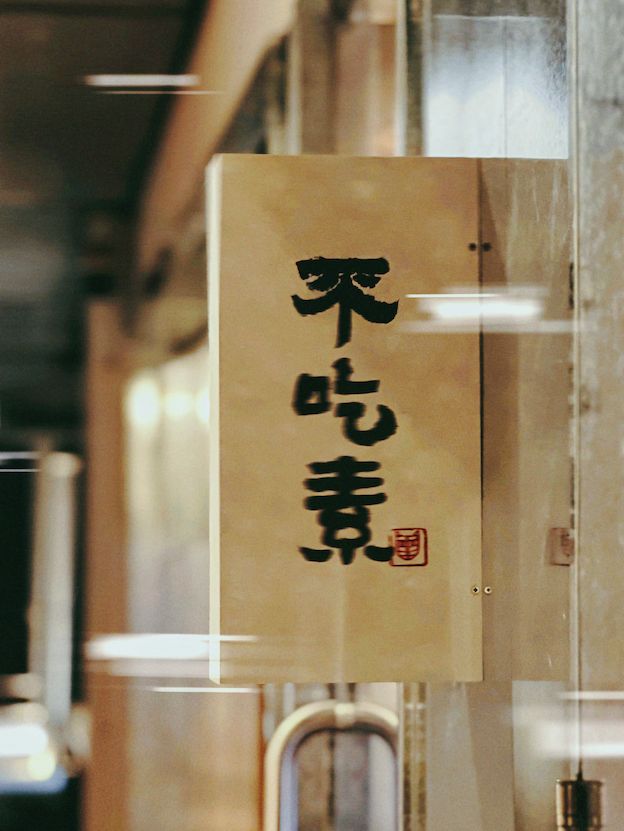 不吃素